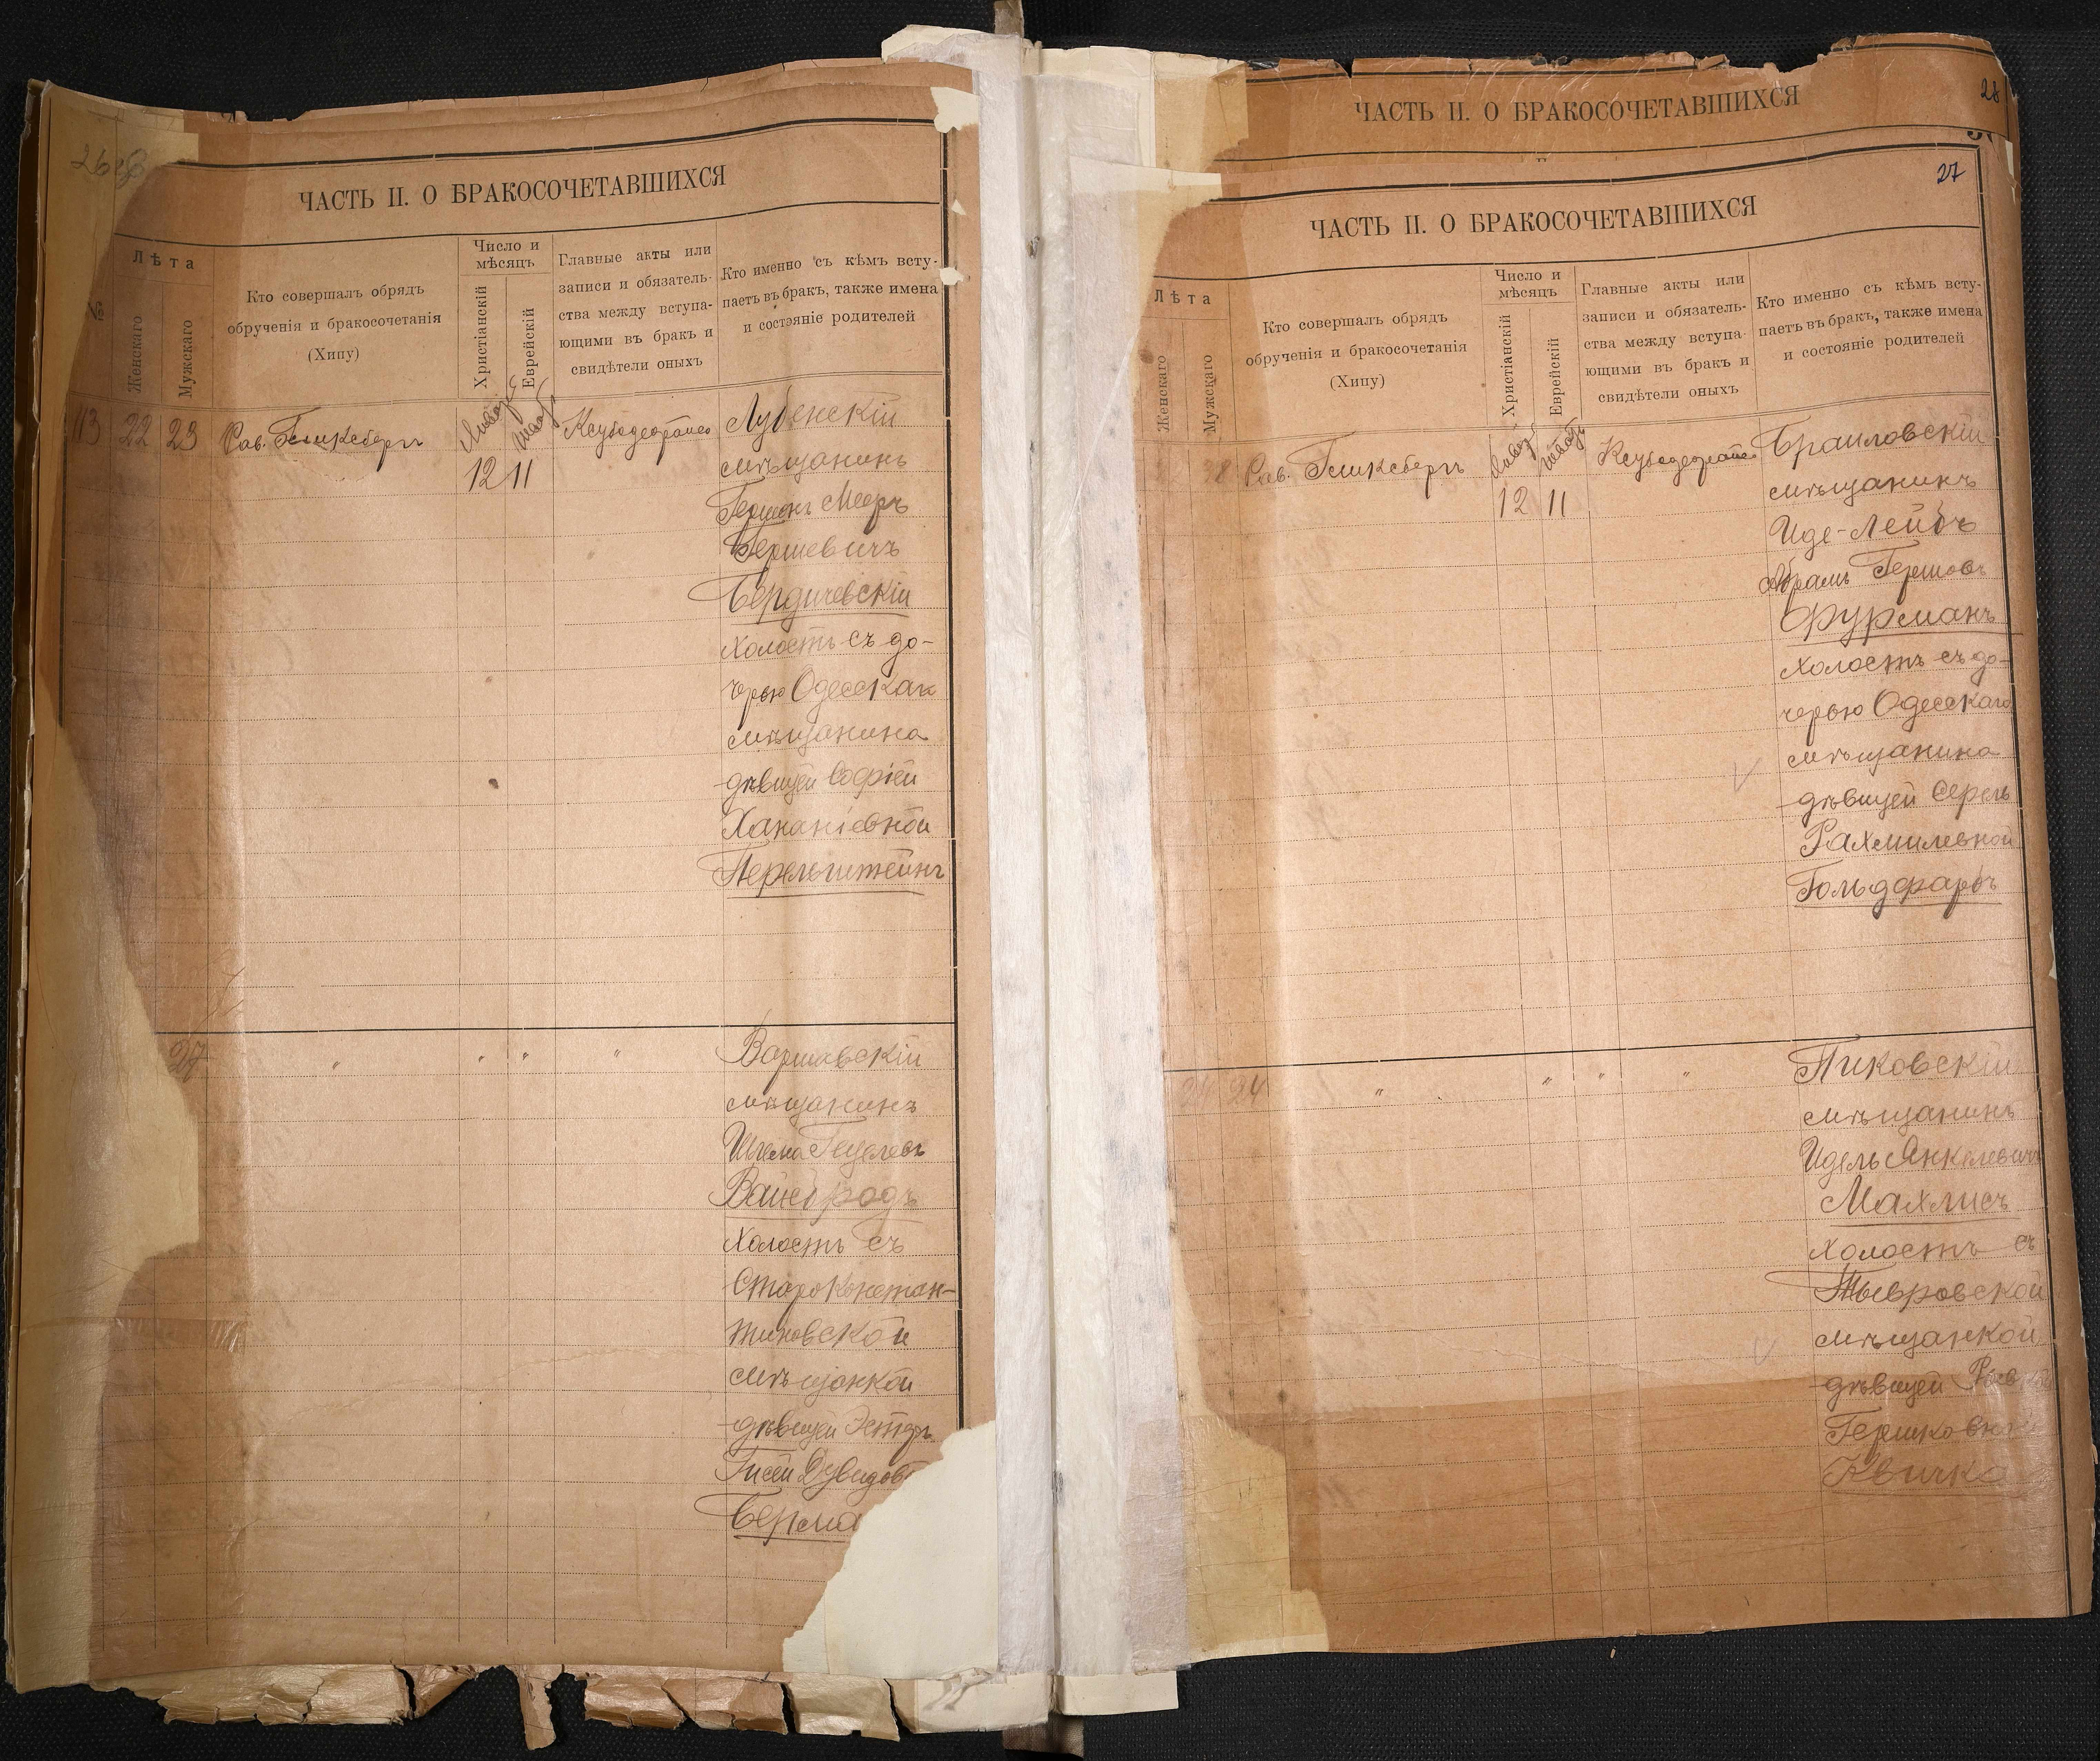 26 об
ЧАСТЬ II. О БРАКОСОЧЕТАВШИХСЯ
№
Лѣта
Женскаго
Мужскаго
Кто совершалъ обрядъ
обрученія и бракосочетанія
(Хипу)
Число и
мѣсяцъ
Христіанскій
Еврейскій
Главные акты или
записи и обязатель-
ства между вступа-
ющими въ бракъ и
свидѣтели оныхъ
Кто именно съ кѣмъ всту-
паетъ въ бракъ, также имена
и состояніе родителей
113 22 23 Рав. Гликсбергъ
12 11
Лубенскій
мѣщанинъ
Гершонъ Мееръ
Бершевичъ
Бердичевскій
холостъ съ до-
черью Одесскаг
мѣщанина
дѣвицей Софіей
Хананіевной
Перельштейнъ
27 " " " "
Варшавскій
мѣщанинъ
Шлема Гецелевъ
Вайнбродъ
холостъ съ
Староконстан-
тиновской
мѣщанкой
дѣвицей Эстеръ
Гисей Дувидов
Берма
28
ЧАСТЬ II. О БРАКОСОЧЕТАВШИХСЯ
27
ЧАСТЬ II. О БРАКОСОЧЕТАВШИХСЯ
Лѣта
Женскаго
Мужскаго
Кто совершалъ обрядъ
обрученія и бракосочетанія
(Хипу)
Число и
мѣсяцъ
Христіанскій
Еврейскій
Главные акты или
записи и обязатель-
ства между вступа-
ющими въ бракъ и
свидѣтели оныхъ
Кто именно съ кѣмъ всту-
паетъ въ бракъ, также имена
и состояніе родителей
28 Рав. Гликсбергъ
12 11
Браиловскій
мѣщанинъ
Иде-Лейбъ
Абрамъ Гершовъ
Фурманъ
холостъ съ до-
черью Одесскаго
мѣщанина
дѣвицей Серель
Рахмилевной
Гольдфарбъ
24 24 " " " "
Пиковскій
мѣщанинъ
Идель Янкелевичъ
Махлисъ
холостъ съ
Тывровской
мѣщанкой
дѣвицей
Гершковн
Квичко